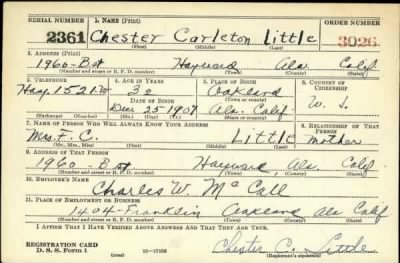 SERIAL NUMBER 1. NAME (Print) ORDER NUMBER
2361 Chester Carleton Little 3026
(First) (Middle) (Last)
2. ADDRESS (Print)
1960-B st Hayward Ala. Calif.
(Number and street or R. F. D. number) (Town) (County) (State)
3. TELEPHONE 4. AGE IN YEARS 5. PLACE OF BIRTH 6. COUNTRY OF CITIZENSHIP
Hay. 1521W 32 Oakland
DATE OF BIRTH (Town or county)
Dec 25 1907 Ala. Calif U. S.
(Exchange) (Number) (Mo.) (Day) (Yr.) (State or country)
7. NAME OF PERSON WHO WILL ALWAYS KNOW YOUR ADDRESS 8. RELATIONSHIP OF THAT PERSON
Mrs. F. C. Little mother
(Mr., Mrs., Miss) (First) (Middle) (Last)
9. ADDRESS OF THAT PERSON
1960-B st Hayward, Ala. Calif
(Number and street or R. F. D. number) (Town) (County) (State)
10. EMPLOYER'S NAME
Charles W. McCall
11. PLACE OF EMPLOYMENT OR BUSINESS
1404-Franklin Oakland Ala Calif
(Number and street or R. F. D. number) (Town) (County) (State)
I AFFIRM THAT I HAVE VERIFIED ABOVE ANSWERS AND THAT THEY ARE TRUE.
REGISTRATION CARD
D. S. S. Form 1 (Over) Chester C. Little
(Registrant's signature)